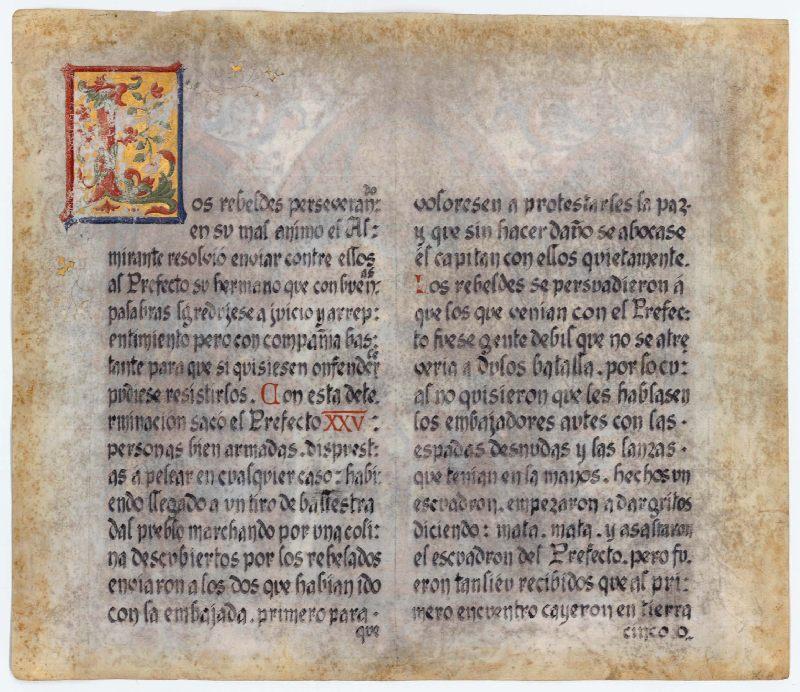 Los rebeldes perseveran:do
en su mal animo el Al:
mirante resolvió enviar contre ellos
al Prefecto su hermano que con buen:as
palabras lg redujese a juicio y arrep:
entimiento pero con compañia bas:
tante para que si quisiesen onfender:les
pudiese resistirlos. Con esta dete:
rminacion saco el Prefecto XXV :
personas bien armadas. dispuest:
as a pelear en cualquier caso: habi:
endo llegado a un tiro de ballestra
dal pueblo marchando por una coli:
na descubiertos por los rebelados
enviaron a los dos que habian ido
con la embajada. primero para .
que
voloresen a protestarles la paz.
y que sin hacer daño se abocase
él capitan con ellos quietamente.
Los rebeldes se persuadieron á
que los que venian con el Prefec:
to fuese gente debil que no se atre
veria a dvlos batalla. por lo cu:
al no quisieron que les hablasen
los embajadores avtes con las .
espadas desnudas y las lanzas .
que tenian en la manos. hechos un
escvadron. empezaron a dar gritos
diciendo: mata. mata. y asaltaron
el escvadron del Prefecto. pero fu.
eron tan recibidos que al pri:
mero encventro cayeron en tierra
cinco. o.